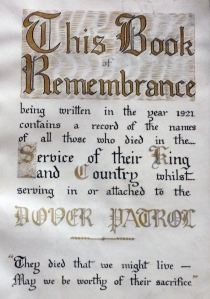 This Book
of
Remembrance
being written in the year 1921
contains a record of the names
of all those who died in the....
Service of their King
and Country whilst
serving in or attached to the
DOVER PATROL
"They died that we might live —
May we be worthy of their sacrifice"